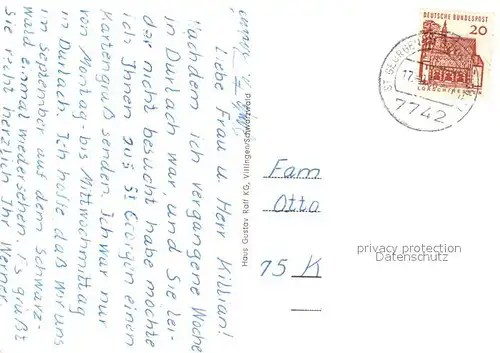 Liebe Frau u. Herr Killian!
Nachdem ich vergangene Woche
in Durlach war, und Sie lei-
der nicht besucht habe möchte
ich Ihnen aus St Georgen einen
Kartengruß senden. Ich war nur
von Montag - bis Mittwochmittag
in Durlach. Ich hoffe daß wir uns
im September auf dem Schwarz-
wald einmal wiedersehen. Es grüßt
Sie recht herzlich Ihr Werner.
Haus Gustav Ralf KG, Villingen/Schwarzwald
Fam
Otto
75 K
DEUTSCHE BUNDESPOST
20
ST GEORGEN
17.
7742
privacy protection
Datenschutz